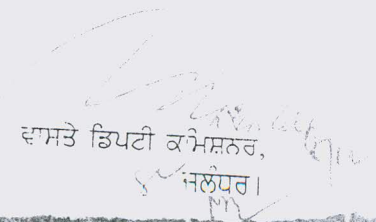 ਵਾਸਤੇ ਡਿਪਟੀ ਕਮਿਸ਼ਨਰ,
ਜਲੰਧਰ।